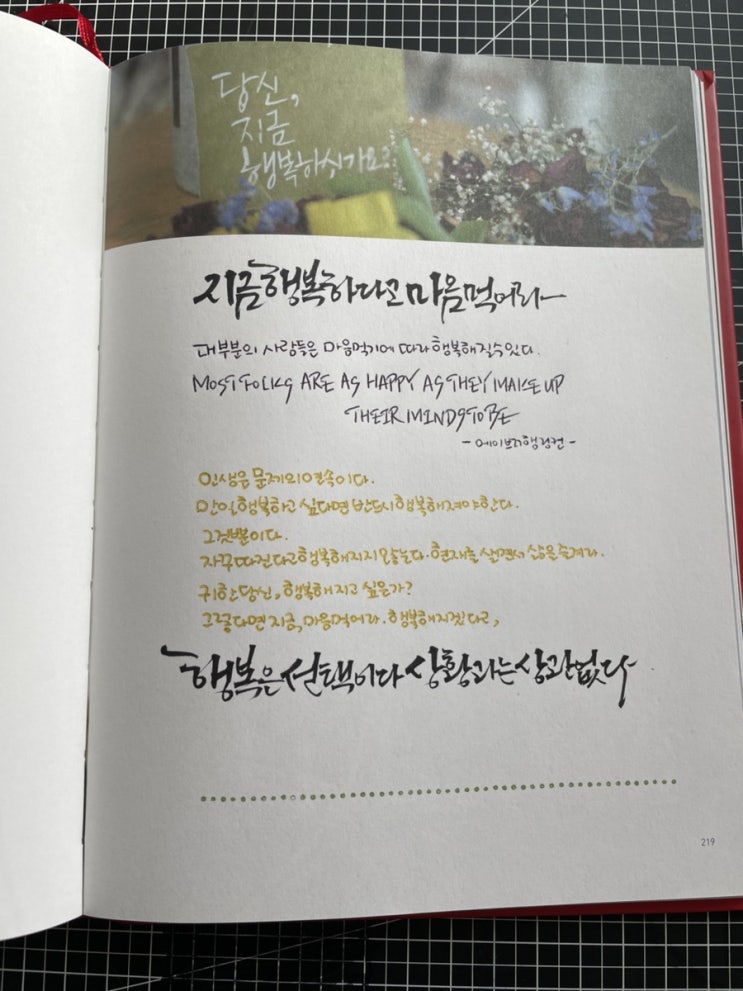 당신,
지금
행복하신가요?
지금 행복하다고 마음먹어라
대부분의 사람들은 마음먹기에 따라 행복해질 수 있다.
MOST FOLKS ARE AS HAPPY AS THEY MAKE UP
THEIR MINDS TO BE
- 에이브러햄 링컨 -
인생은 문제의 연속이다.
만일 행복하고 싶다면 반드시 행복해져야 한다.
그것뿐이다.
자꾸 따진다고 행복해지지 않는다. 현재를 살면서 삶을 즐겨라.
귀한 당신, 행복해지고 싶은가?
그렇다면 지금, 마음먹어라. 행복해지겠다고,
행복은 선택이다 상황과는 상관없다
219